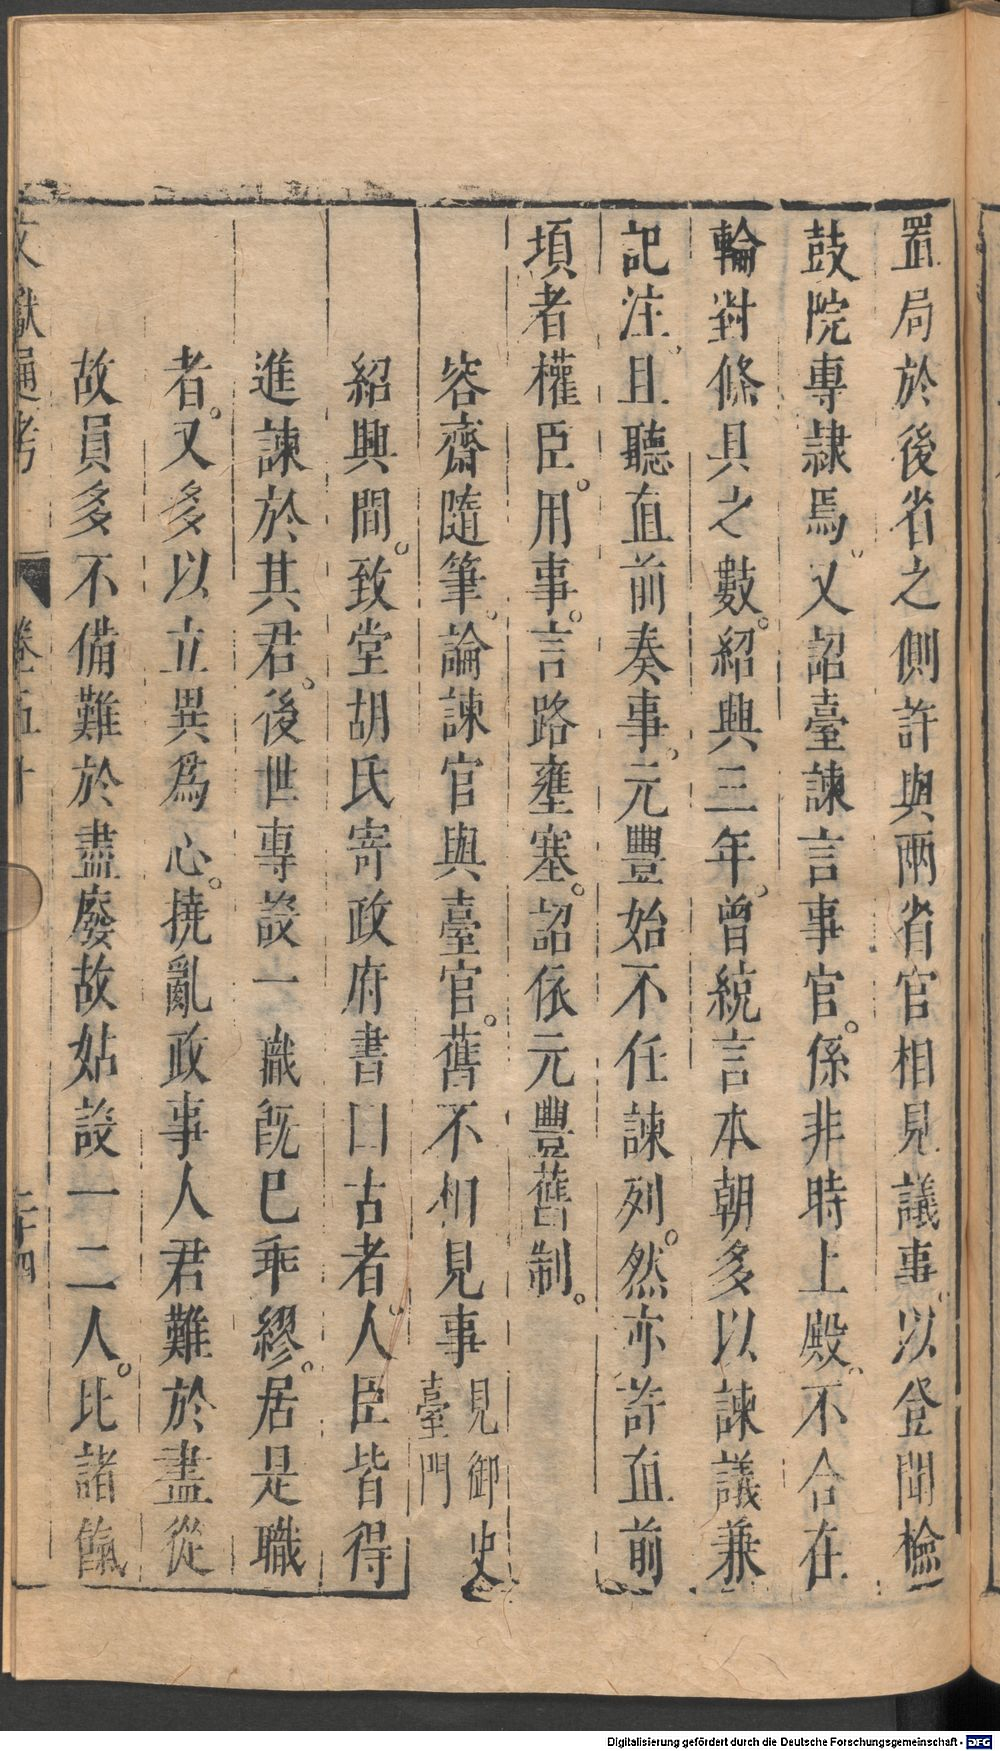 置局於後省之側許與兩省官相見議事以登聞檢
鼓院專隷焉又詔臺諫言事官係非時上殿不合在
輪對條具之數紹興三年曾統言本朝多以諫議兼
記注且聽直前奏事元豐始不任諫列然亦許直前
項者權臣用事言路壅塞詔依元豐舊制
容齋隨筆論諫官與臺官舊不相見事見御史臺門
紹興間致堂胡氏寄政府書曰古者人臣皆得
進諫於其君後世專設一職既已乖繆居是職
者又多以立異爲心撓亂政事人君難於盡從
故員多不備難於盡廢故姑設一二人比諸餼
文獻通考 卷五十 二十四
Digitalisierung gefördert durch die Deutsche Forschungsgemeinschaft - DFG